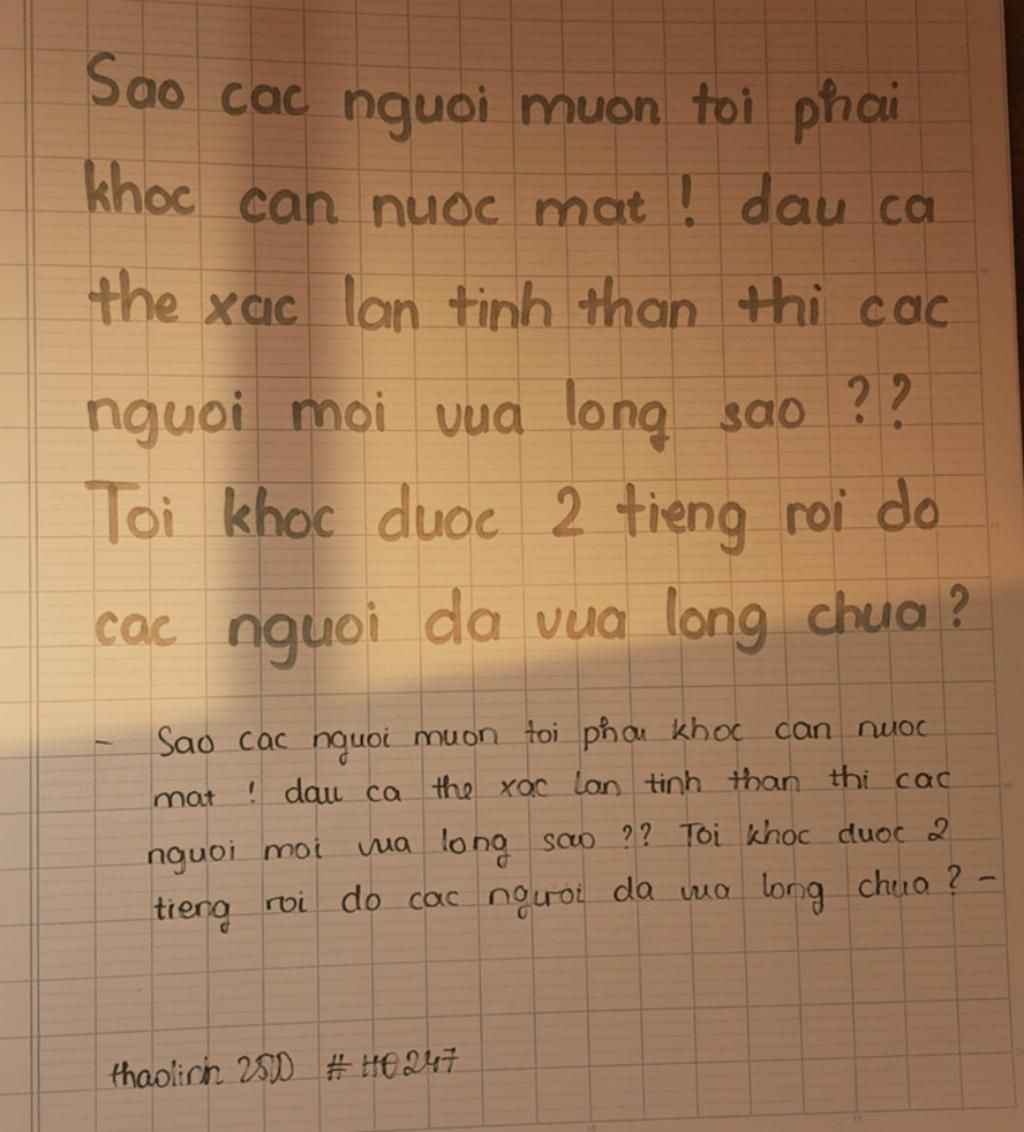 Sao cac nguoi muon toi phai
khoc can nuoc mat ! dau ca
the xac lan tinh than thi cac
nguoi moi vua long sao ??
Toi khoc duoc 2 tieng roi do
cac nguoi da vua long chua ?
- Sao cac nguoi muon toi phai khoc can nuoc
mat ! dau ca the xac lan tinh than thi cac
nguoi moi vua long sao ?? Toi khoc duoc 2
tieng roi do cac nguoi da vua long chua ? -
thaolinh #